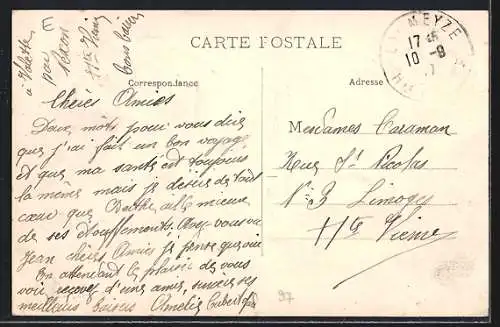 E
à Valette
par
Nexon
Hte Vienne
bons baisers
CARTE POSTALE
Correspondance
Adresse
LA MEYZE
17 45
10 -9
Chères Amies
Deux mots pour vous dire
que j'ai fait un bon voyage
et que ma santé est toujours
la même mais je désire de tout
cœur que Berthe aille mieux
de ses étouffements. Avez vous vu
Jean chères Amies je pense que oui
En attendant le plaisir de vous
voir recevez d'une amie sincère ses
meilleurs baisers Amélie
Mesdames Caraman
Rue St Nicolas
N° 3 Limoges
Hte Vienne
97